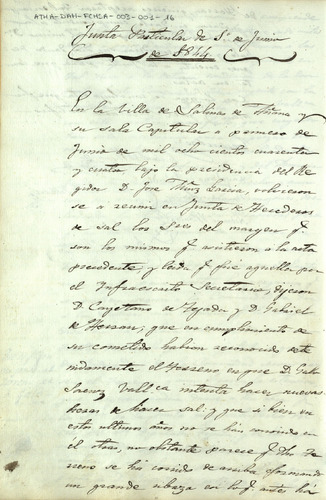 ATHA-DAH-FCHSA-003-001-16
Junta Particular de 1º de Junio
de 1844
En la villa de Salinas de Añana y
su sala Capitular a primero de
Junio de mil ocho cientos cuarenta
y cuatro bajo la presidencia del Re
gidor D. Jose volvieron
se a reunir en Junta de Herederos
de sal los Sres del margen q.
son los mismos q. asistieron a la acta
precedente, y leida q. fue aquella por
el Infraescrito Secretario, dijeron
D. Cayetano de Tejada y D. Gabriel
de que en cumplimiento de
su cometido habian reconocido dete
nidamente el terreno en que D.
Saenz intenta hacer nuevas
heras de hacer sal: y que si bien en
estos ultimos años no se han conocido en
el otras, no obstante parece q. dho te
rreno se há corrido de arriba formando
un grande en lo q. antes há